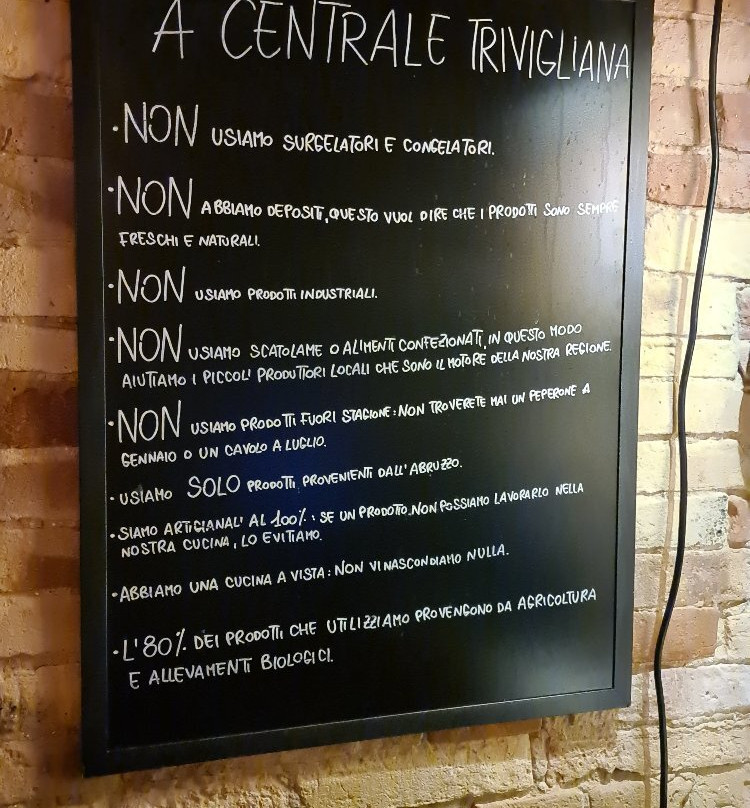 A CENTRALE TRIVIGLIANA
•NON USIAMO SURGELATORI E CONGELATORI.
•NON ABBIAMO DEPOSITI, QUESTO VUOL DIRE CHE I PRODOTTI SONO SEMPRE
FRESCHI E NATURALI.
•NON USIAMO PRODOTTI INDUSTRIALI.
•NON USIAMO SCATOLAME O ALIMENTI CONFEZIONATI, IN QUESTO MODO
AIUTIAMO I PICCOLI PRODUTTORI LOCALI CHE SONO IL MOTORE DELLA NOSTRA REGIONE.
•NON USIAMO PRODOTTI FUORI STAGIONE: NON TROVERETE MAI UN PEPERONE A
GENNAIO O UN CAVOLO A LUGLIO.
•USIAMO SOLO PRODOTTI PROVENIENTI DALL'ABRUZZO.
•SIAMO ARTIGIANALI AL 100%: SE UN PRODOTTO NON POSSIAMO LAVORARLO NELLA
NOSTRA CUCINA, LO EVITIAMO.
•ABBIAMO UNA CUCINA A VISTA: NON VI NASCONDIAMO NULLA.
•L'80% DEI PRODOTTI CHE UTILIZZIAMO PROVENGONO DA AGRICOLTURA
E ALLEVAMENTI BIOLOGICI.